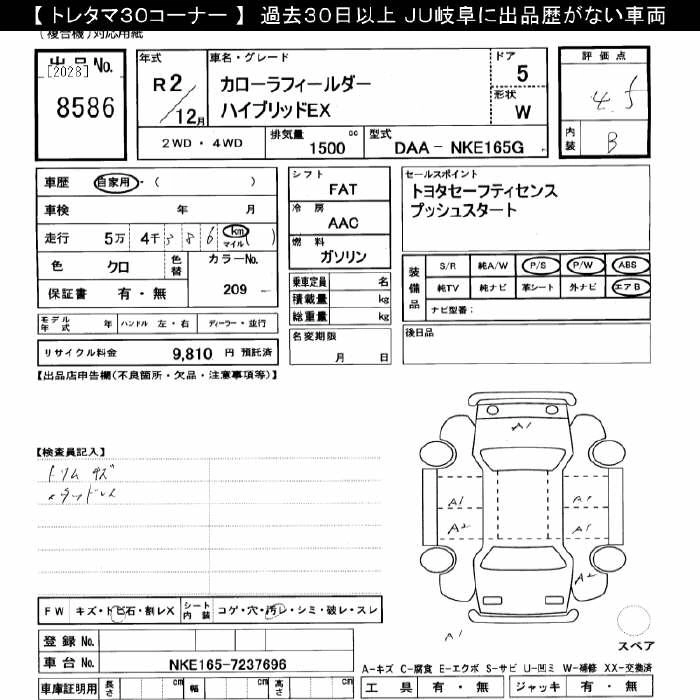 【 トレタマ30コーナー 】 過去30日以上 JU岐阜に出品歴がない車両
(複合機)対応用紙
出品No.
[2028]
8586
年式
R2/12月
車名・グレード
カローラフィールダー
ハイブリッドEX
ドア
5
形状
W
2WD・4WD
排気量
1500 cc
型式
DAA－NKE165G
評価点
4.5
内装
B
車歴
自家用・( )
車検 年 月
走行 5万 4千 3 8 6 km マイル ( )
色 クロ
色替
カラーNo.
209 －
保証書 有・無
シフト
FAT
冷房
AAC
燃料
ガソリン
乗車定員 名
積載量 kg
総重量 kg
名変期限
月 日
セールスポイント
トヨタセーフティセンス
プッシュスタート
装備品
S/R 純A/W P/S P/W ABS
純TV 純ナビ 革シート 外ナビ エアB
ナビ型番：
後日品
モデル年式 年 ハンドル 左・右 ディーラー・並行
リサイクル料金 9,810 円 預託済
【出品店申告欄(不良箇所・欠品・注意事項等)】
【検査員記入】
トリム キズ
スタッドレス
A1
A1
A2
A1
A1
A2
A1
スペア
FW キズ・トビ石・割レX
シート内装 コゲ・穴・汚レ・シミ・破レ・スレ
登録No.
車台No. NKE165-7237696
車庫証明用 長さ cm 幅 cm 高さ cm
A-キズ C-腐食 E-エクボ S-サビ U-凹ミ W-補修 XX-交換済
工具 有・無 ジャッキ 有・無